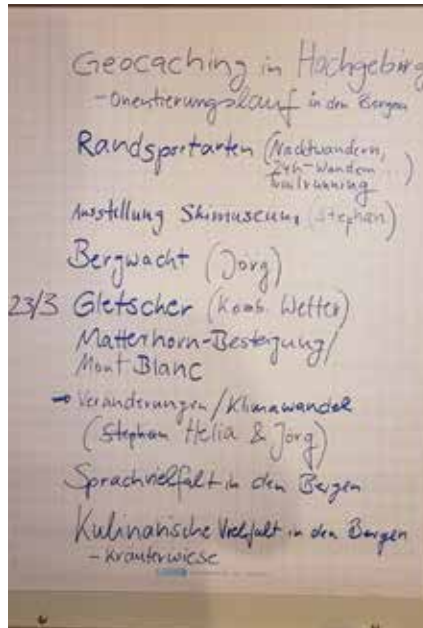 Geocaching in Hochgebirg
- Orientierungslauf in den Bergen
Randsportarten (Nachtwandern,
24h-Wandern ...)
Trailrunning
Ausstellung Skimuseum (Stephan)
Bergwacht (Jörg)
23/3 Gletscher (Komb. Wetter)
Matterhorn-Besteigung/
Mont Blanc
→ Veränderungen/Klimawandel
(Stephan Helia & Jörg)
Sprachvielfalt in den Bergen
Kulinarische Vielfalt in den Bergen
- Kräuterwiese